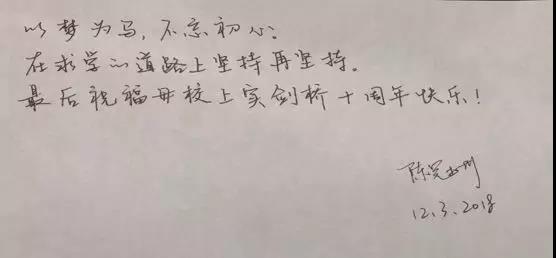 以梦为马，不忘初心。
在求学的道路上坚持再坚持。
最后祝福母校上实剑桥十周年快乐！
陈
12.3.2018